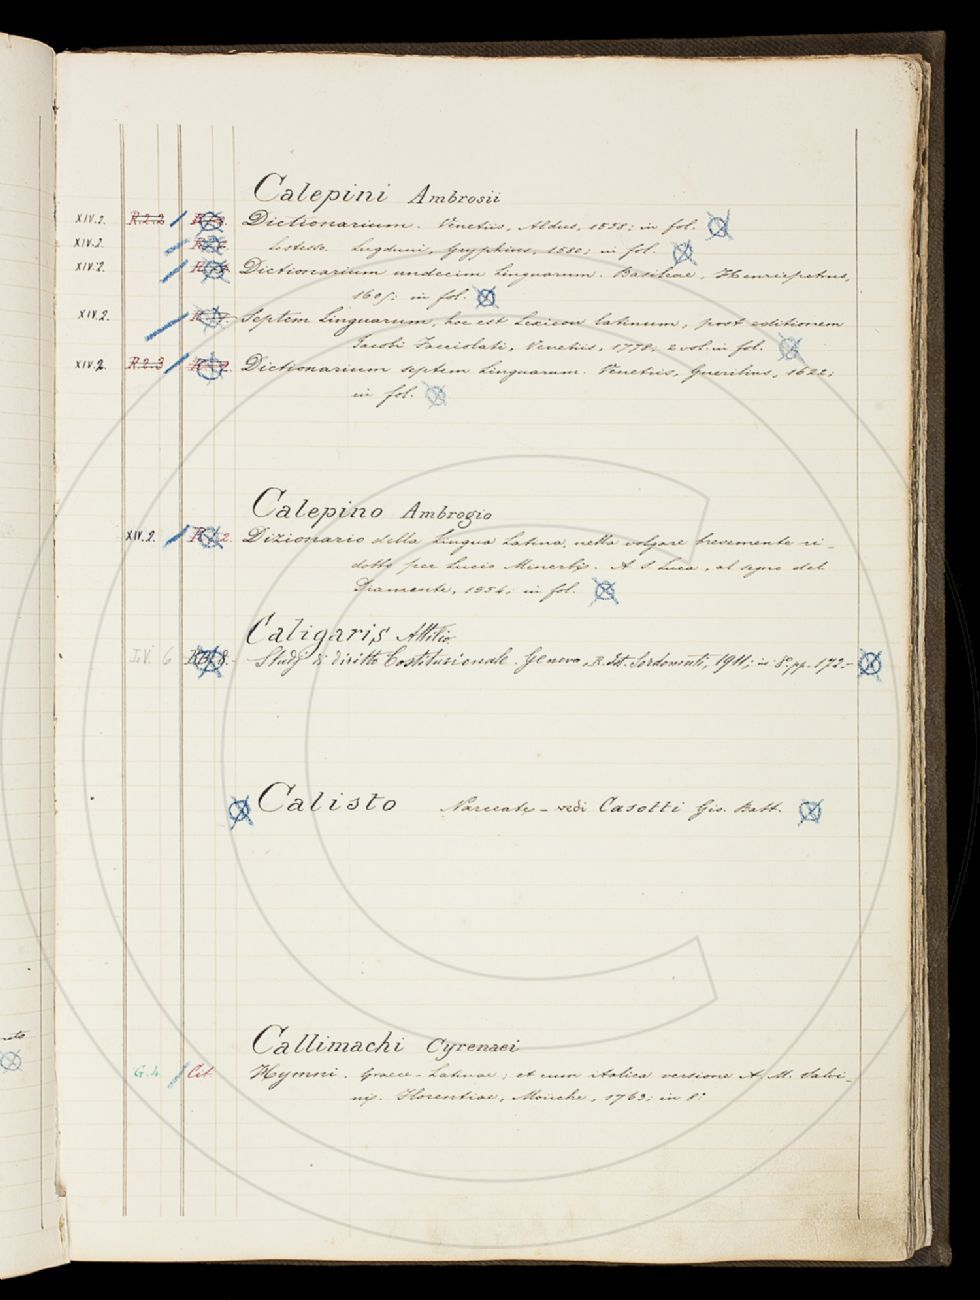 Calepini Ambrosii
XIV.2. R.2.2 Dictionarium. Venetiis, Aldus, 1558; in fol.
XIV.2. Lugduni, Gryphius, 1550; in fol.
XIV.2. Dictionarium undecim linguarum. Basileae, Henricpetrus,
1605; in fol.
XIV.2. Septem linguarum, hoc est lexicon latinum, post editionem
Jacobi Facciolati, Venetiis, 1778; 2 vol. in fol.
XIV.2. R.2.3 Dictionarium septem linguarum. Venetiis, Guerilius, 1622;
in fol.
Calepino Ambrogio
XIV.2. Dizionario della lingua latina, nella volgare brevemente ri-
dotto per Lucio Minerbj. A S. Luca, al segno del
Diamante, 1554; in fol.
Caligaris Attilio
IV. 6 Studj di diritto Costituzionale. Genova, R. Ist. Sordomuti, 1911; in 8° pp. 172.-
Calisto - vedi Casotti Gio. Batt.
Callimachi Cyrenaei
G.4. Cit. Hymni. Graece-Latinae; et cum italica versione A. M. Salvi-
nij. Florentiae, Moücke, 1763; in 8°